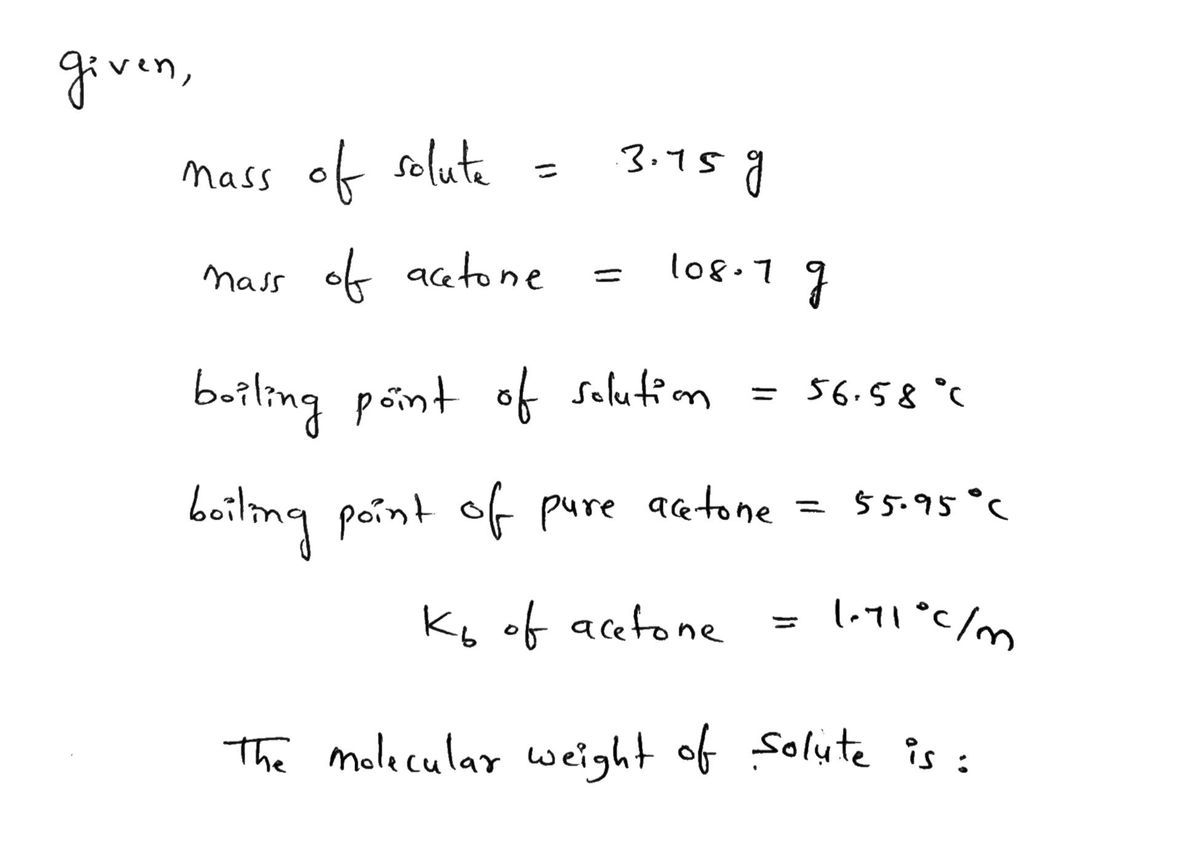 given,
mass of solute = 3.75 g
mass of acetone = 108.7 g
boiling point of solution = 56.58 °c
boiling point of pure acetone = 55.95 °c
Kb of acetone = 1.71 °c/m
The molecular weight of solute is :